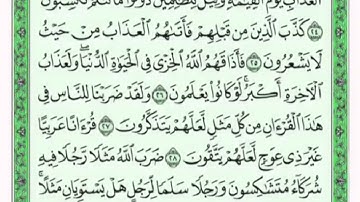 ٱلْعَذَابِ يَوْمَ ٱلْقِيَٰمَةِ وَقِيلَ لِلظَّٰلِمِينَ ذُوقُوا۟ مَا كُنتُمْ تَكْسِبُونَ
٢٤ كَذَّبَ ٱلَّذِينَ مِن قَبْلِهِمْ فَأَتَىٰهُمُ ٱلْعَذَابُ مِنْ حَيْثُ
لَا يَشْعُرُونَ ٢٥ فَأَذَاقَهُمُ ٱللَّهُ ٱلْخِزْىَ فِى ٱلْحَيَوٰةِ ٱلدُّنْيَا ۖ وَلَعَذَابُ
ٱلْءَاخِرَةِ أَكْبَرُ ۚ لَوْ كَانُوا۟ يَعْلَمُونَ ٢٦ وَلَقَدْ ضَرَبْنَا لِلنَّاسِ فِى
هَٰذَا ٱلْقُرْءَانِ مِن كُلِّ مَثَلٍ لَّعَلَّهُمْ يَتَذَكَّرُونَ ٢٧ قُرْءَانًا عَرَبِيًّا
غَيْرَ ذِى عِوَجٍ لَّعَلَّهُمْ يَتَّقُونَ ٢٨ ضَرَبَ ٱللَّهُ مَثَلًا رَّجُلًا فِيهِ
شُرَكَآءُ مُتَشَٰكِسُونَ وَرَجُلًا سَلَمًا لِّرَجُلٍ هَلْ يَسْتَوِيَانِ مَثَلًا ۚ